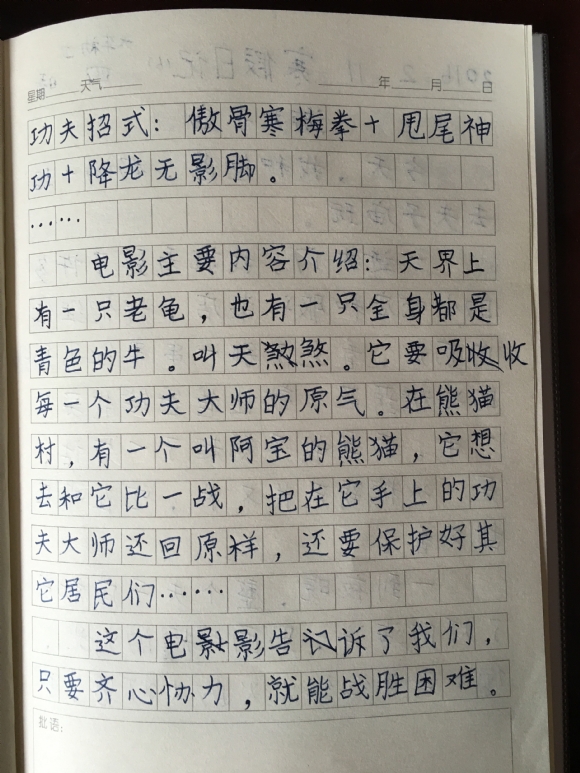 星期 天气 年 月 日
功夫招式：傲骨寒梅拳+甩尾神
功+降龙无影脚。
……
电影主要内容介绍：天界上
有一只老龟，也有一只全身都是
青色的牛。叫天煞。它要吸收
每一个功夫大师的原气。在熊猫
村，有一个叫阿宝的熊猫，它想
去和它比一战，把在它手上的功
夫大师还回原样，还要保护好其
它居民们……
这个电影告诉了我们，
只要齐心协力，就能战胜困难。
批语：